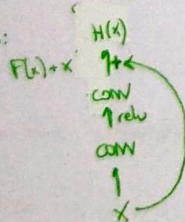 :
H(x)
F(x) + x
+
conv
relu
conv
X